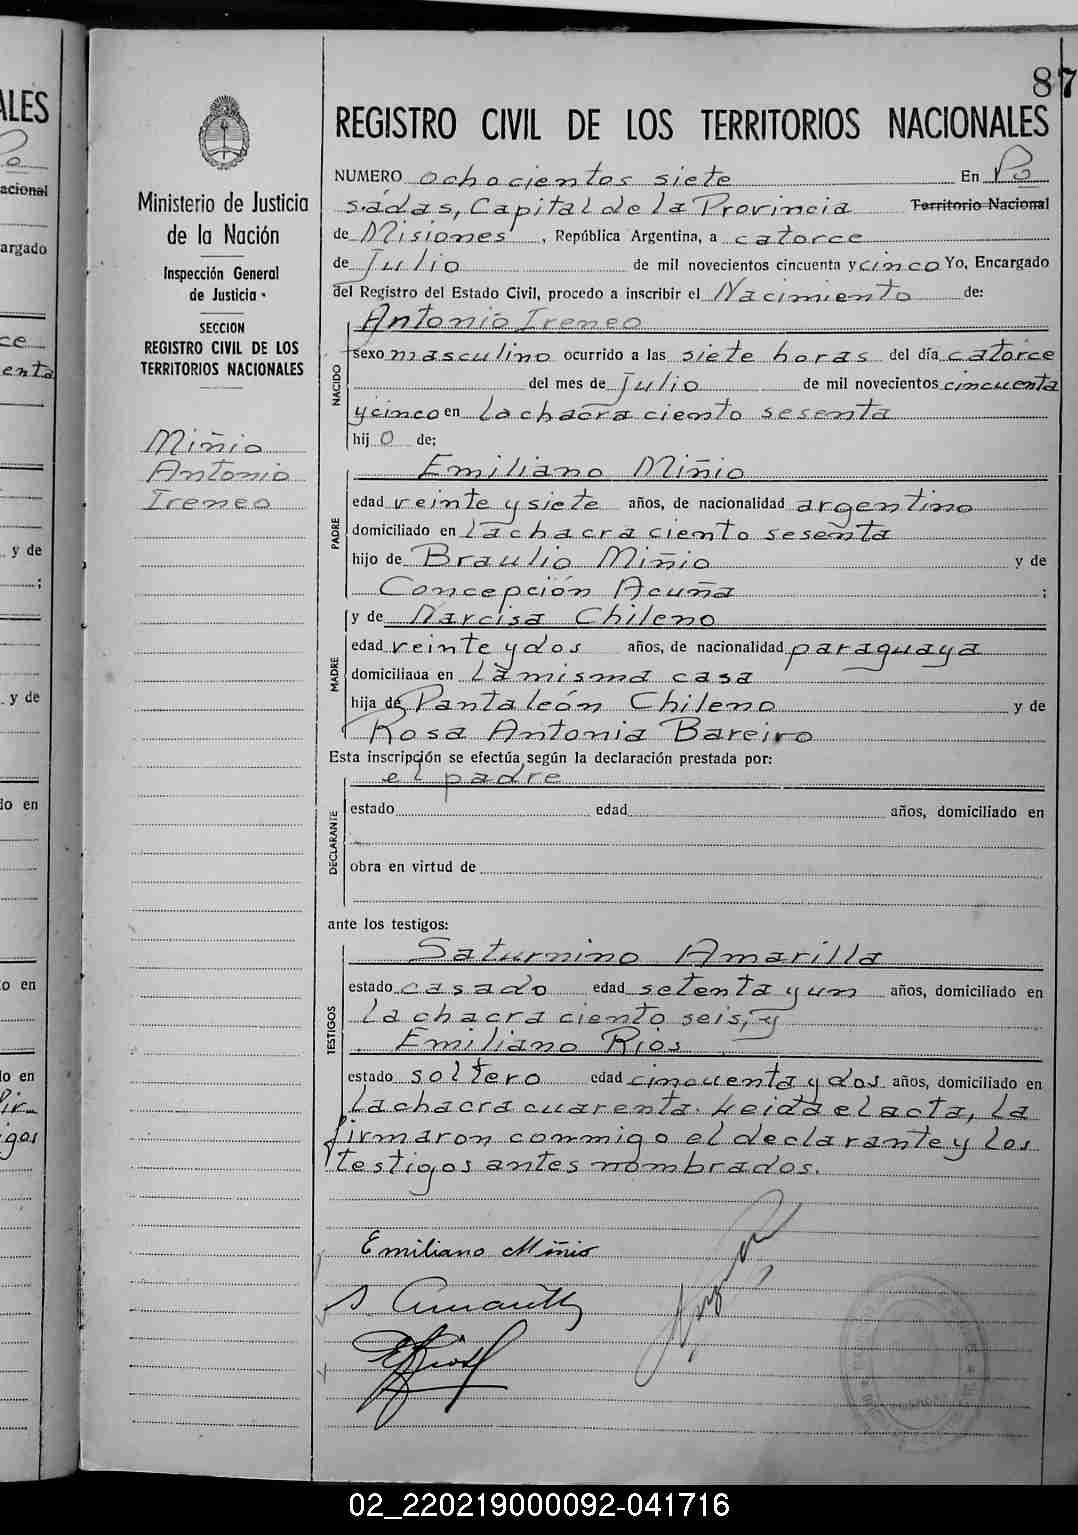 87
REGISTRO CIVIL DE LOS TERRITORIOS NACIONALES
Ministerio de Justicia
de la Nación
Inspección General
de Justicia
SECCION
REGISTRO CIVIL DE LOS
TERRITORIOS NACIONALES
Miñio
Antonio
Ireneo
NUMERO ochocientos siete En Po
sádas, Capital de la Provincia Territorio Nacional
de Misiones, República Argentina, a catorce
de Julio de mil novecientos cincuenta y cinco Yo, Encargado
del Registro del Estado Civil, procedo a inscribir el Nacimiento de:
NACIDO
Antonio Ireneo
sexo masculino ocurrido a las siete horas del día catorce
del mes de Julio de mil novecientos cincuenta
y cinco en La chacra ciento sesenta
hijo de:
PADRE
Emiliano Miñio
edad veinte y siete años, de nacionalidad argentino
domiciliado en La chacra ciento sesenta
hijo de Braulio Miñio y de
Concepción Acuña ;
MADRE
y de Narcisa Chileno
edad veinte y dos años, de nacionalidad paraguaya
domiciliada en La misma casa
hija de Pantaleón Chileno y de
Rosa Antonia Bareiro
Esta inscripción se efectúa según la declaración prestada por:
DECLARANTE
el padre
estado edad años, domiciliado en
obra en virtud de
ante los testigos:
TESTIGOS
Saturnino Amarilla
estado casado edad setenta y un años, domiciliado en
La chacra ciento seis, y
Emiliano Rios
estado soltero edad cincuenta y dos años, domiciliado en
La chacra cuarenta. Leida el acta, La
firmaron conmigo el declarante y los
testigos antes nombrados.
Emiliano Miñio
S Amarilla
E Rios
ALES
acional
argado
ce
enta
y de
y de
do en
o en
do en
gos
02_220219000092-041716